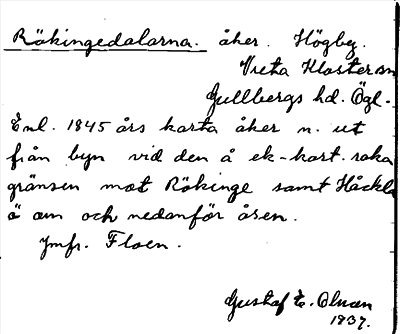 Rökingedalarna. åker. Högby.
Vreta Kloster sn
Gullbergs hd. Ögl.
Enl. 1845 års karta åker n. ut
från byn vid den å ek-kart. raka
gränsen mot Rökinge samt Håckla
ö om och nedanför åsen.
Jmfr. Floen.
Gustaf E. Olsson
1937.